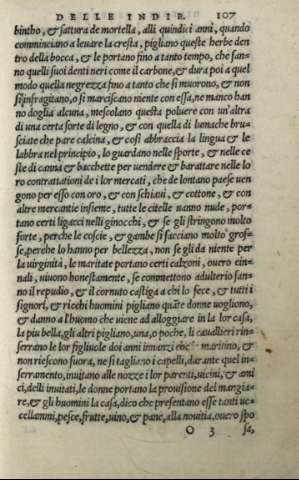 DELLE INDIE. 107
bintho, & fattura de mortella, alli quindici anni, quando
comminciano a leuare la cresta, pigliano queste herbe den
tro della bocca, & le portano fino a tanto tempo, che fan-
no quelli suoi denti neri come il carbone, & dura poi a quel
modo quella negrezza fino a tanto che si muorono, & non
si infragitano, o si marciscano niente con essa, ne manco han
no doglia alcuna, mescolano questa poluere con un'altra
di una certa sorte di legno, & con quella di lumache bru-
sciate che pare calcina, & così abbraccia la lingua & le
labbra nel principio, lo guardano nelle sporte, & nelle ce
ste di canna & bacchette per uendere & barattare nelle lo
ro contrattationi de i lor mercati, che de lontano paese uen
gono per esso con oro, & con schiaui, & cottone, & con
altre mercantie insieme, tutte le citelle uanno nude, por-
tano certi ligacci nelli ginocchi, & se gli stringono molto
forte, perche le coscie, & gambe si facciano molto grof-
se, perche lo hanno per bellezza, non se gli da niente per
la uirginità, le maritate portano certi calzoni, ouero cin-
nali, uiuono honestamente, se commettono adulterio fan-
no il repudio, & il cornuto castiga a chi lo fece, & tutti i
signori, & ricchi huomini pigliano quāte donne uogliono,
& danno a l'huomo che uiene ad alloggiare in la lor casa,
la piu bella, gli altri pigliano, una, o poche, li cauallieri rin-
serrano le lor figliuole doi anni innanzi che maritino, &
non riescono fuora, ne si tagliano i capelli, durante quel in-
serramento, inuitano alle nozze i lor parenti, uicini, & ami
ci, delli inuitati, le donne portano la prouisione del mangia-
re, & gli huomini la casa, dico che presentano esse tanti uc-
cellami, pesce, frutte, uino, & pane, alla nouitia, ouero spo
O 3 sa,